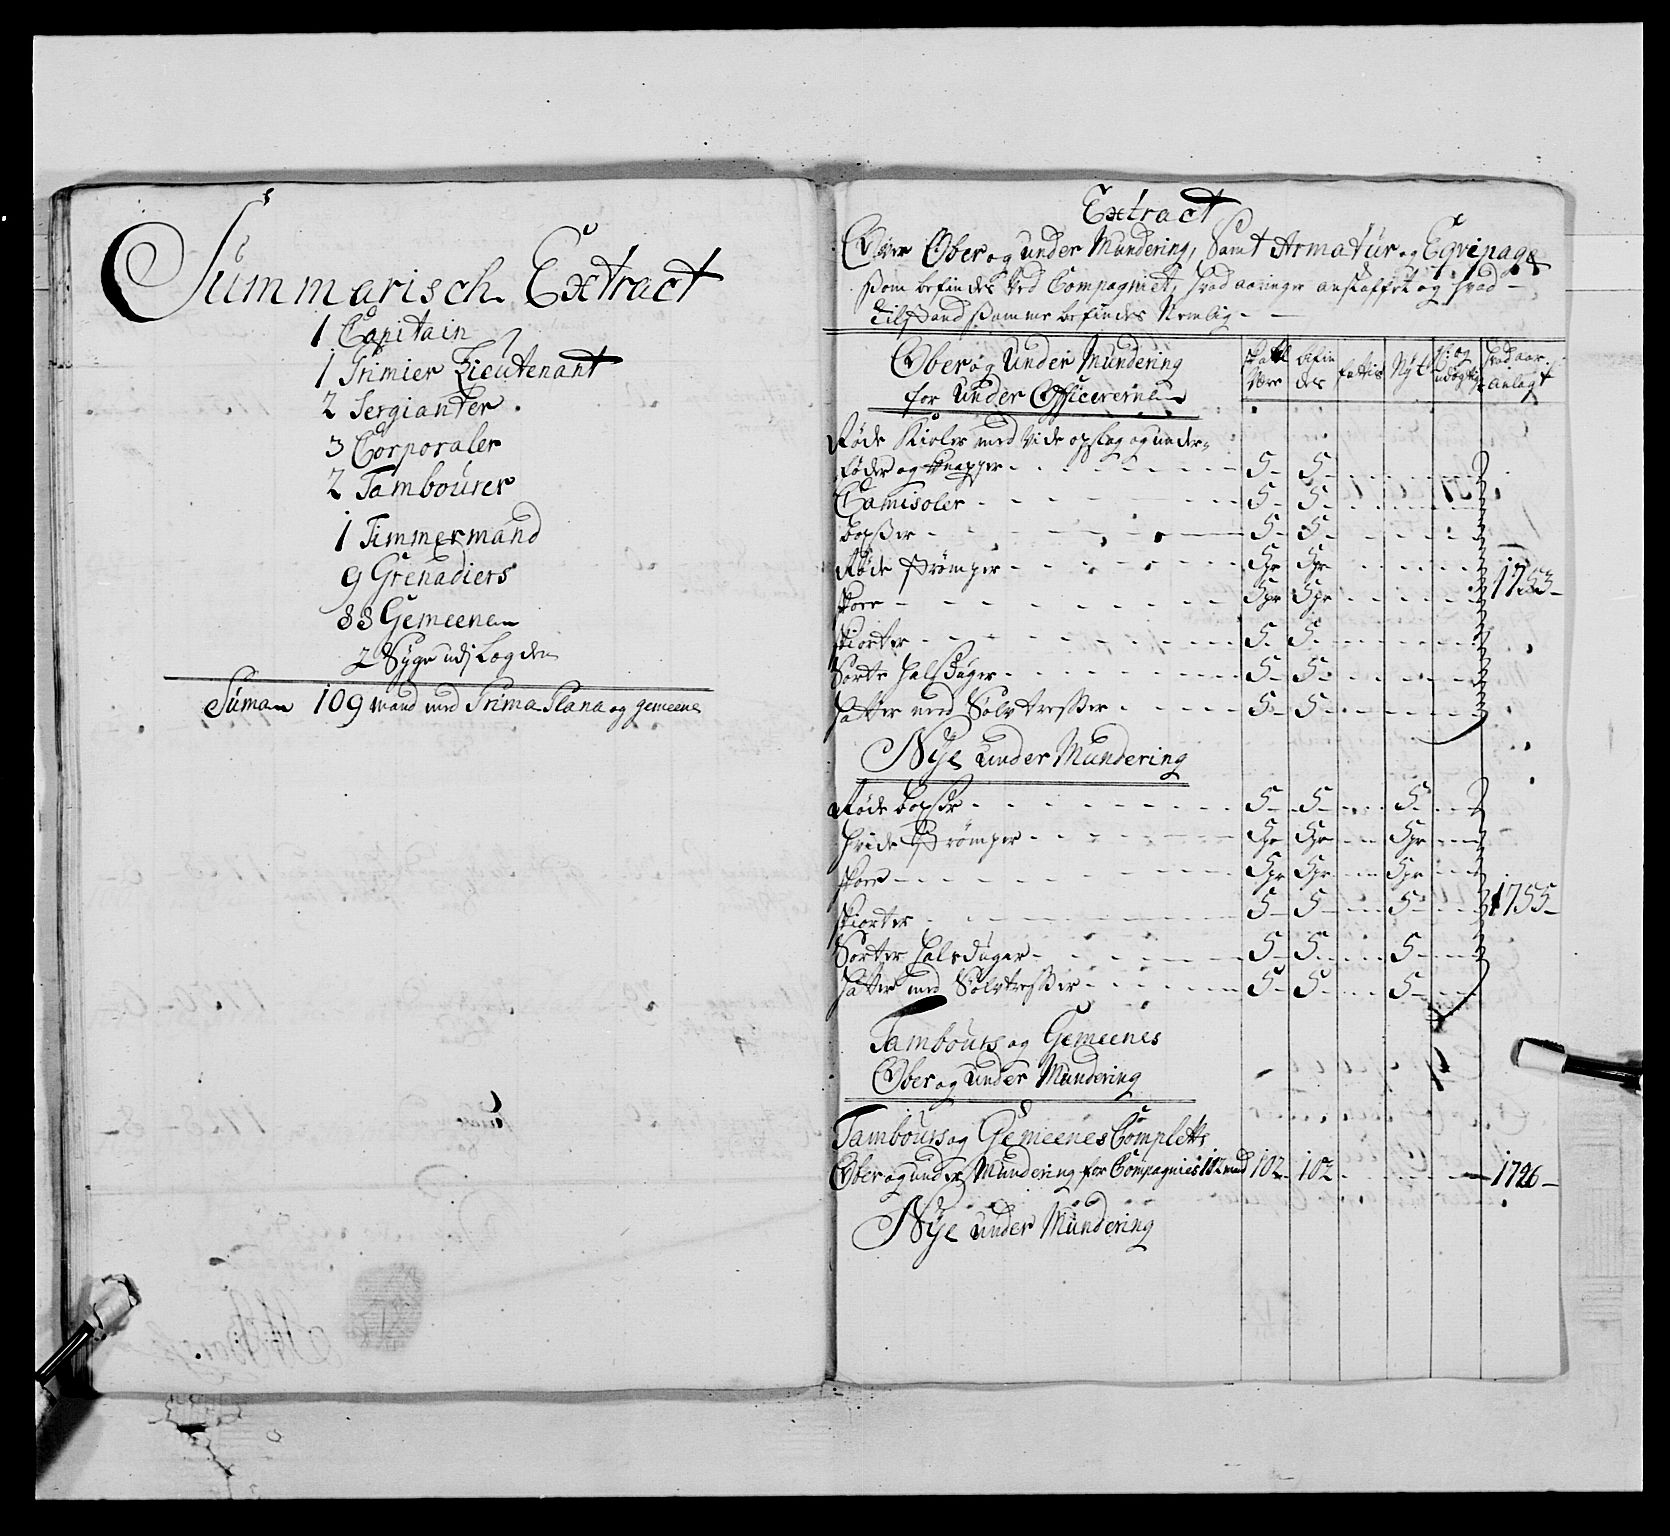 Summarisch Extract
1 Capitain
1 Primier Lieutenant
2 Sergianter
3 Corporaler
2 Tambourer
1 Timmermand
9 Grenadiers
88 Gemeene
2 Syge udj Lægden
Suma 109 mand med Prima Plana og gemeene
Extract
Over Ober og under Mundering, Samt Armatur og Eqvipage
som befindes ved Compagniet, hvad aaringer anskaffet og hvad
tilstand samme befindes Nemlig
Ober og Under Mundering for Under Officererne | skall være | befindes | fattis | Nyt | hvad aar anlagt
Røde Kioler med Vide opslag og under-
foder og knapper 5 5
Camisoler 5 5
boxser 5 5
Røde strømper 5pr 5pr 1753
skoe 5pr 5pr
skiorter 5 5
Sorte halsduger 5 5
hatter med Sølvtresser 5 5
Nye under Mundering
Røde boxser 5 5 5
hvide strømper 5pr 5pr 5pr
skoe 5pr 5pr 5pr
skiorter 5 5 5 1755
Sorter halsduger 5 5 5
hatter med Sølvtresser 5 5 5
Tambours og Gemeenes
Ober og under Mundering
Tambours og Gemeenes Complette
Ober og under Mundering for Compagniets 102 mand 102 102 1746
Nye under Mundering